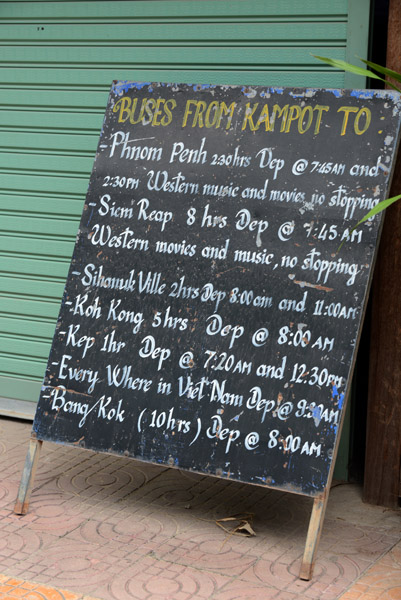 BUSES FROM KAMPOT TO
- Phnom Penh 2:30hrs Dep @ 7:45AM and
2:30PM Western music and movies, no stopping
- Siem Reap 8 hrs Dep @ 7:45AM
Western movies and music, no stopping
- Sihanuk Ville 2hrs Dep 8:00am and 11:00AM
- Koh Kong 5hrs Dep @ 8:00AM
- Kep 1hr Dep @ 7:20AM and 12:30PM
- Every Where in Viet Nam Dep @ 9:30AM
- Bang/Kok (10hrs) Dep @ 8:00AM